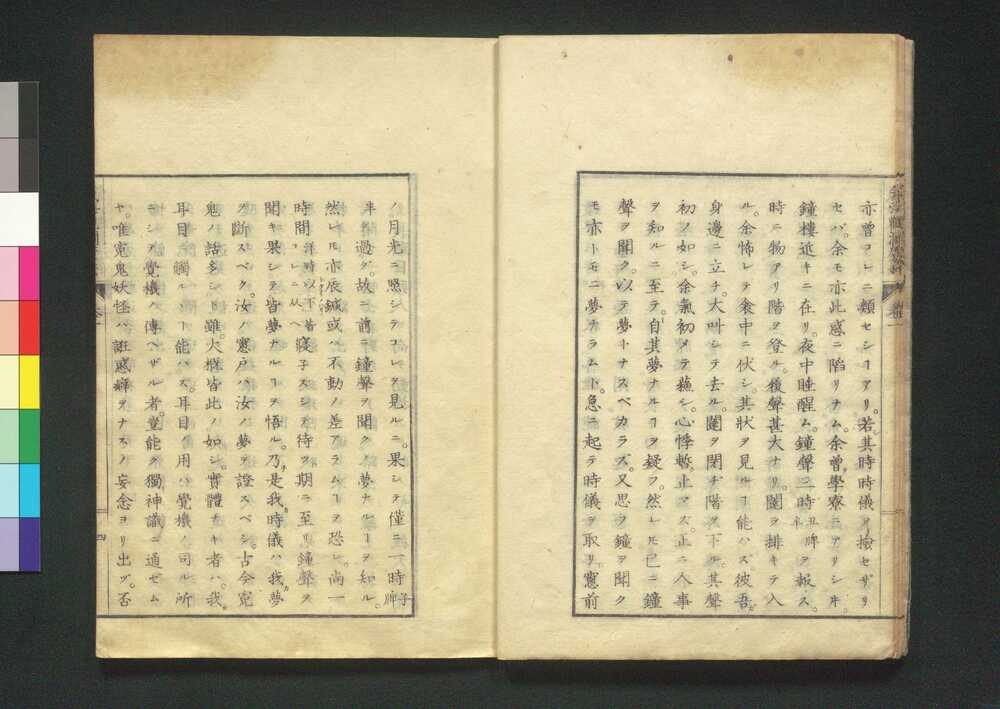 亦曾コレニ類セシヿアリ。若其時時儀ヲ撿セザリ
セバ。余モ亦此惑ニ陷リナム。余曾學寮ニアリシ𪜈。
鐘樓近キニ在リ。夜中睡醒ム。鐘聲二時丑牌ヲ報ス。
時ニ物アリ階ヲ登ル。履聲甚大ナリ。闥ヲ排キテ入
ル。余怖レテ衾中ニ伏シ其狀ヲ見ルヿ能ハズ。彼吾
身邊ニ立チ。大叫シテ去ル。闥ヲ閉ヂ階ヲ下ル。其聲
初ノ如シ。余氣初メテ蘓シ。心悸暫ク止マズ。止ニ人事
ヲ知ルニ至テ。自其夢ナルヿヲ疑フ。然レ𪜈已ニ鐘
聲ヲ聞ク。以テ夢トナスベカラズ。又思フ鐘ヲ聞ク
モ亦トモニ夢ナラムト。急ニ起テ時儀ヲ取リ窻前
ノ月光ニ照シテコレヲ見ルニ。果シテ僅ニ一時子牌
半ヲ過グ。故ニ前ニ鐘聲ヲ聞クノ夢ナルヿヲ知ル。
然レ𪜈亦辰鍼或ハ不動ノ差アラムヿヲ恐レ。尚一
時間洋時以下皆コレニ从ヘ寢子ズシテ待ツ期ニ至リ鐘聲ヲ
聞キ果シテ皆夢ナルヿヲ悟ル。乃是我時儀ハ我夢
ヲ斷スベク。汝ノ窻戶ハ汝ノ夢ヲ證スベシ。古今寃
鬼ノ話多シト雖。大槪皆此ノ如シ。實體ナキ者ハ。我
耳目ニ觸ルヽヿ能ハズ。耳目ノ用ハ覺機ノ司ル所
ニシテ。覺機ヘ傳ヘザル者。豈能ク獨神識ニ通ゼム
ヤ。唯寃鬼妖怪ハ誑惑癖ヲナスノ妄念ヨリ出ヅ。否
四